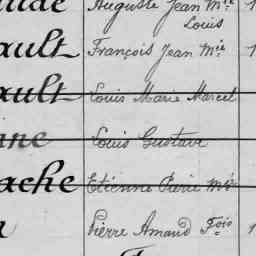 Auguste Jean Mie
Louis
ault François Jean Mie 1
ault Louis Marie Marcel
ine Louis Gustave
ache Etienne Pierre Mie
Pierre Amand Fois 1